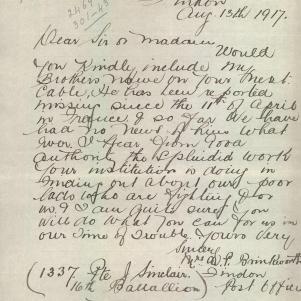 Aug 13th 1917.
2469
301-43
Dear Sir or madam
Would
you Kindly include my
Brothers name on your next
Cable, He has been reported
missing since the 11th of April
in France & so far We have
had no News of him what
ever. I hear from good
authority the splendid work
your institution is doing in
finding out about our poor
lads who are fighting for
us. I am quite sure you
will do what you can for us in
our Time of Trouble. Yours very
sincerely
Mrs W. P. Brinkworth
(1337 Pte J Sinclair.
16th Battallion)
Post Office